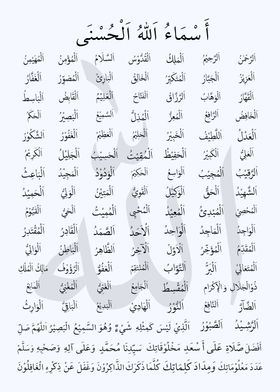 أَسْمَاءُ اَللهُ اَلْحُسْنَى
اَلرَّحْمٰنُ اَلرَّحِيْمُ اَلْمَلِكُ اَلْقُدُّوْسُ اَلسَّلَامُ اَلْمُؤْمِنُ اَلْمُهَيْمِنُ
اَلْعَزِيْزُ اَلْجَبَّارُ اَلْمُتَكَبِّرُ اَلْخَالِقُ اَلْبَارِئُ اَلْمُصَوِّرُ اَلْغَفَّارُ
اَلْقَهَّارُ اَلْوَهَّابُ اَلرَّزَّاقُ اَلْفَتَّاحُ اَلْعَلِيْمُ اَلْقَابِضُ اَلْبَاسِطُ
اَلْخَافِضُ اَلرَّافِعُ اَلْمُعِزُّ اَلْمُذِلُّ اَلسَّمِيْعُ اَلْبَصِيْرُ اَلْحَكَمُ
اَلْعَدْلُ اَللَّطِيْفُ اَلْخَبِيْرُ اَلْحَلِيْمُ اَلْعَظِيْمُ اَلْغَفُوْرُ اَلشَّكُوْرُ
اَلْعَلِيُّ اَلْكَبِيْرُ اَلْحَفِيْظُ اَلْمُقِيْتُ اَلْحَسِيْبُ اَلْجَلِيْلُ اَلْكَرِيْمُ
اَلرَّقِيْبُ اَلْمُجِيْبُ اَلْوَاسِعُ اَلْحَكِيْمُ اَلْوَدُوْدُ اَلْمَجِيْدُ اَلْبَاعِثُ
اَلشَّهِيْدُ اَلْحَقُّ اَلْوَكِيْلُ اَلْقَوِيُّ اَلْمَتِيْنُ اَلْوَلِيُّ اَلْحَمِيْدُ
اَلْمُحْصِيْ اَلْمُبْدِئُ اَلْمُعِيْدُ اَلْمُحْيِيْ اَلْمُمِيْتُ اَلْحَيُّ اَلْقَيُّوْمُ
اَلْوَاجِدُ اَلْمَاجِدُ اَلْوَاحِدُ اَلْأَحَدُ اَلصَّمَدُ اَلْقَادِرُ اَلْمُقْتَدِرُ
اَلْمُقَدِّمُ اَلْمُؤَخِّرُ اَلْأَوَّلُ اَلْآخِرُ اَلظَّاهِرُ اَلْبَاطِنُ اَلْوَالِيْ
اَلْمُتَعَالِيْ اَلْبَرُّ اَلتَّوَّابُ اَلْمُنْتَقِمُ اَلْعَفُوُّ اَلرَّؤُوْفُ مَالِكُ الْمُلْكِ
ذُوالْجَلَالِ وَالْإِكْرَامِ اَلْمُقْسِطُ اَلْجَامِعُ اَلْغَنِيُّ اَلْمُغْنِيْ اَلْمَانِعُ
اَلضَّارُّ اَلنَّافِعُ اَلنُّوْرُ اَلْهَادِيْ اَلْبَدِيْعُ اَلْبَاقِيْ اَلْوَارِثُ
اَلرَّشِيْدُ اَلصَّبُوْرُ اَلَّذِيْ لَيْسَ كَمِثْلِهِ شَيْءٌ وَهُوَ السَّمِيْعُ الْبَصِيْرُ اَللّٰهُمَّ صَلِّ
أَفْضَلَ صَلَاةٍ عَلَى أَسْعَدِ مَخْلُوْقَاتِكَ سَيِّدِنَا مُحَمَّدٍ وَعَلَى آلِهِ وَصَحْبِهِ وَسَلِّمْ
عَدَدَ مَعْلُوْمَاتِكَ وَمِدَادَ كَلِمَاتِكَ كُلَّمَا ذَكَرَكَ الذَّاكِرُوْنَ وَغَفَلَ عَنْ ذِكْرِهِ الْغَافِلُوْنَ
الله